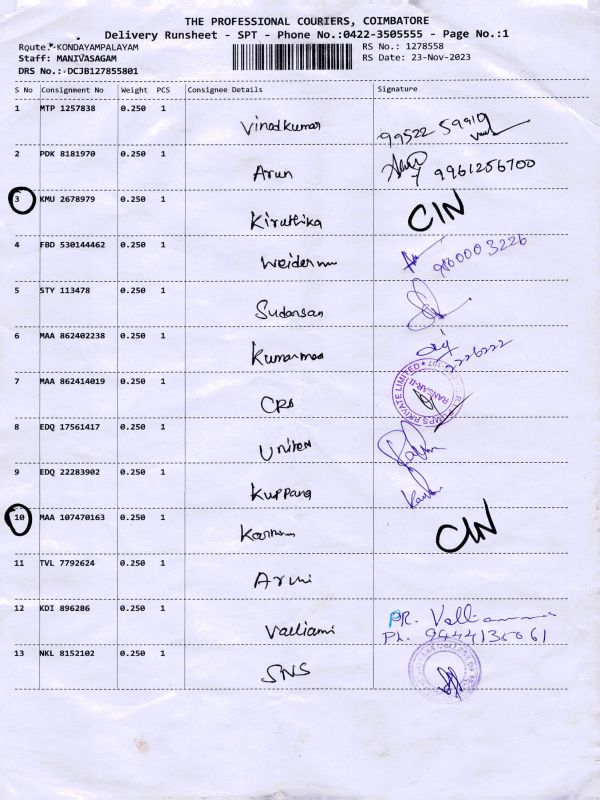 THE PROFESSIONAL COURIERS, COIMBATORE
Delivery Runsheet - SPT - Phone No.:0422-3505555 - Page No.:1
Route.: KONDAYAMPALAYAM
Staff: MANIVASAGAM
DRS No.: DCJB127855801
RS No.: 1278558
RS Date: 23-Nov-2023
S No Consignment No Weight PCS Consignee Details Signature
1 MTP 1257838 0.250 1 Vinodkumar 99522 59919
2 PDK 8181970 0.250 1 Arun 9961256700
3 KMU 2678979 0.250 1 Kiruthika CIN
4 FBD 530144462 0.250 1 9860003226
5 STY 113478 0.250 1 Sudarsan
6 MAA 862402238 0.250 1 2226222
7 MAA 862414019 0.250 1
PRIVATE LIMITED
8 EDQ 17561417 0.250 1
9 EDQ 22283902 0.250 1
10 MAA 107470163 0.250 1 CIN
11 TVL 7792624 0.250 1
12 KDI 896286 0.250 1 Valliami PR.
Ph.
13 NKL 8152102 0.250 1 SNS